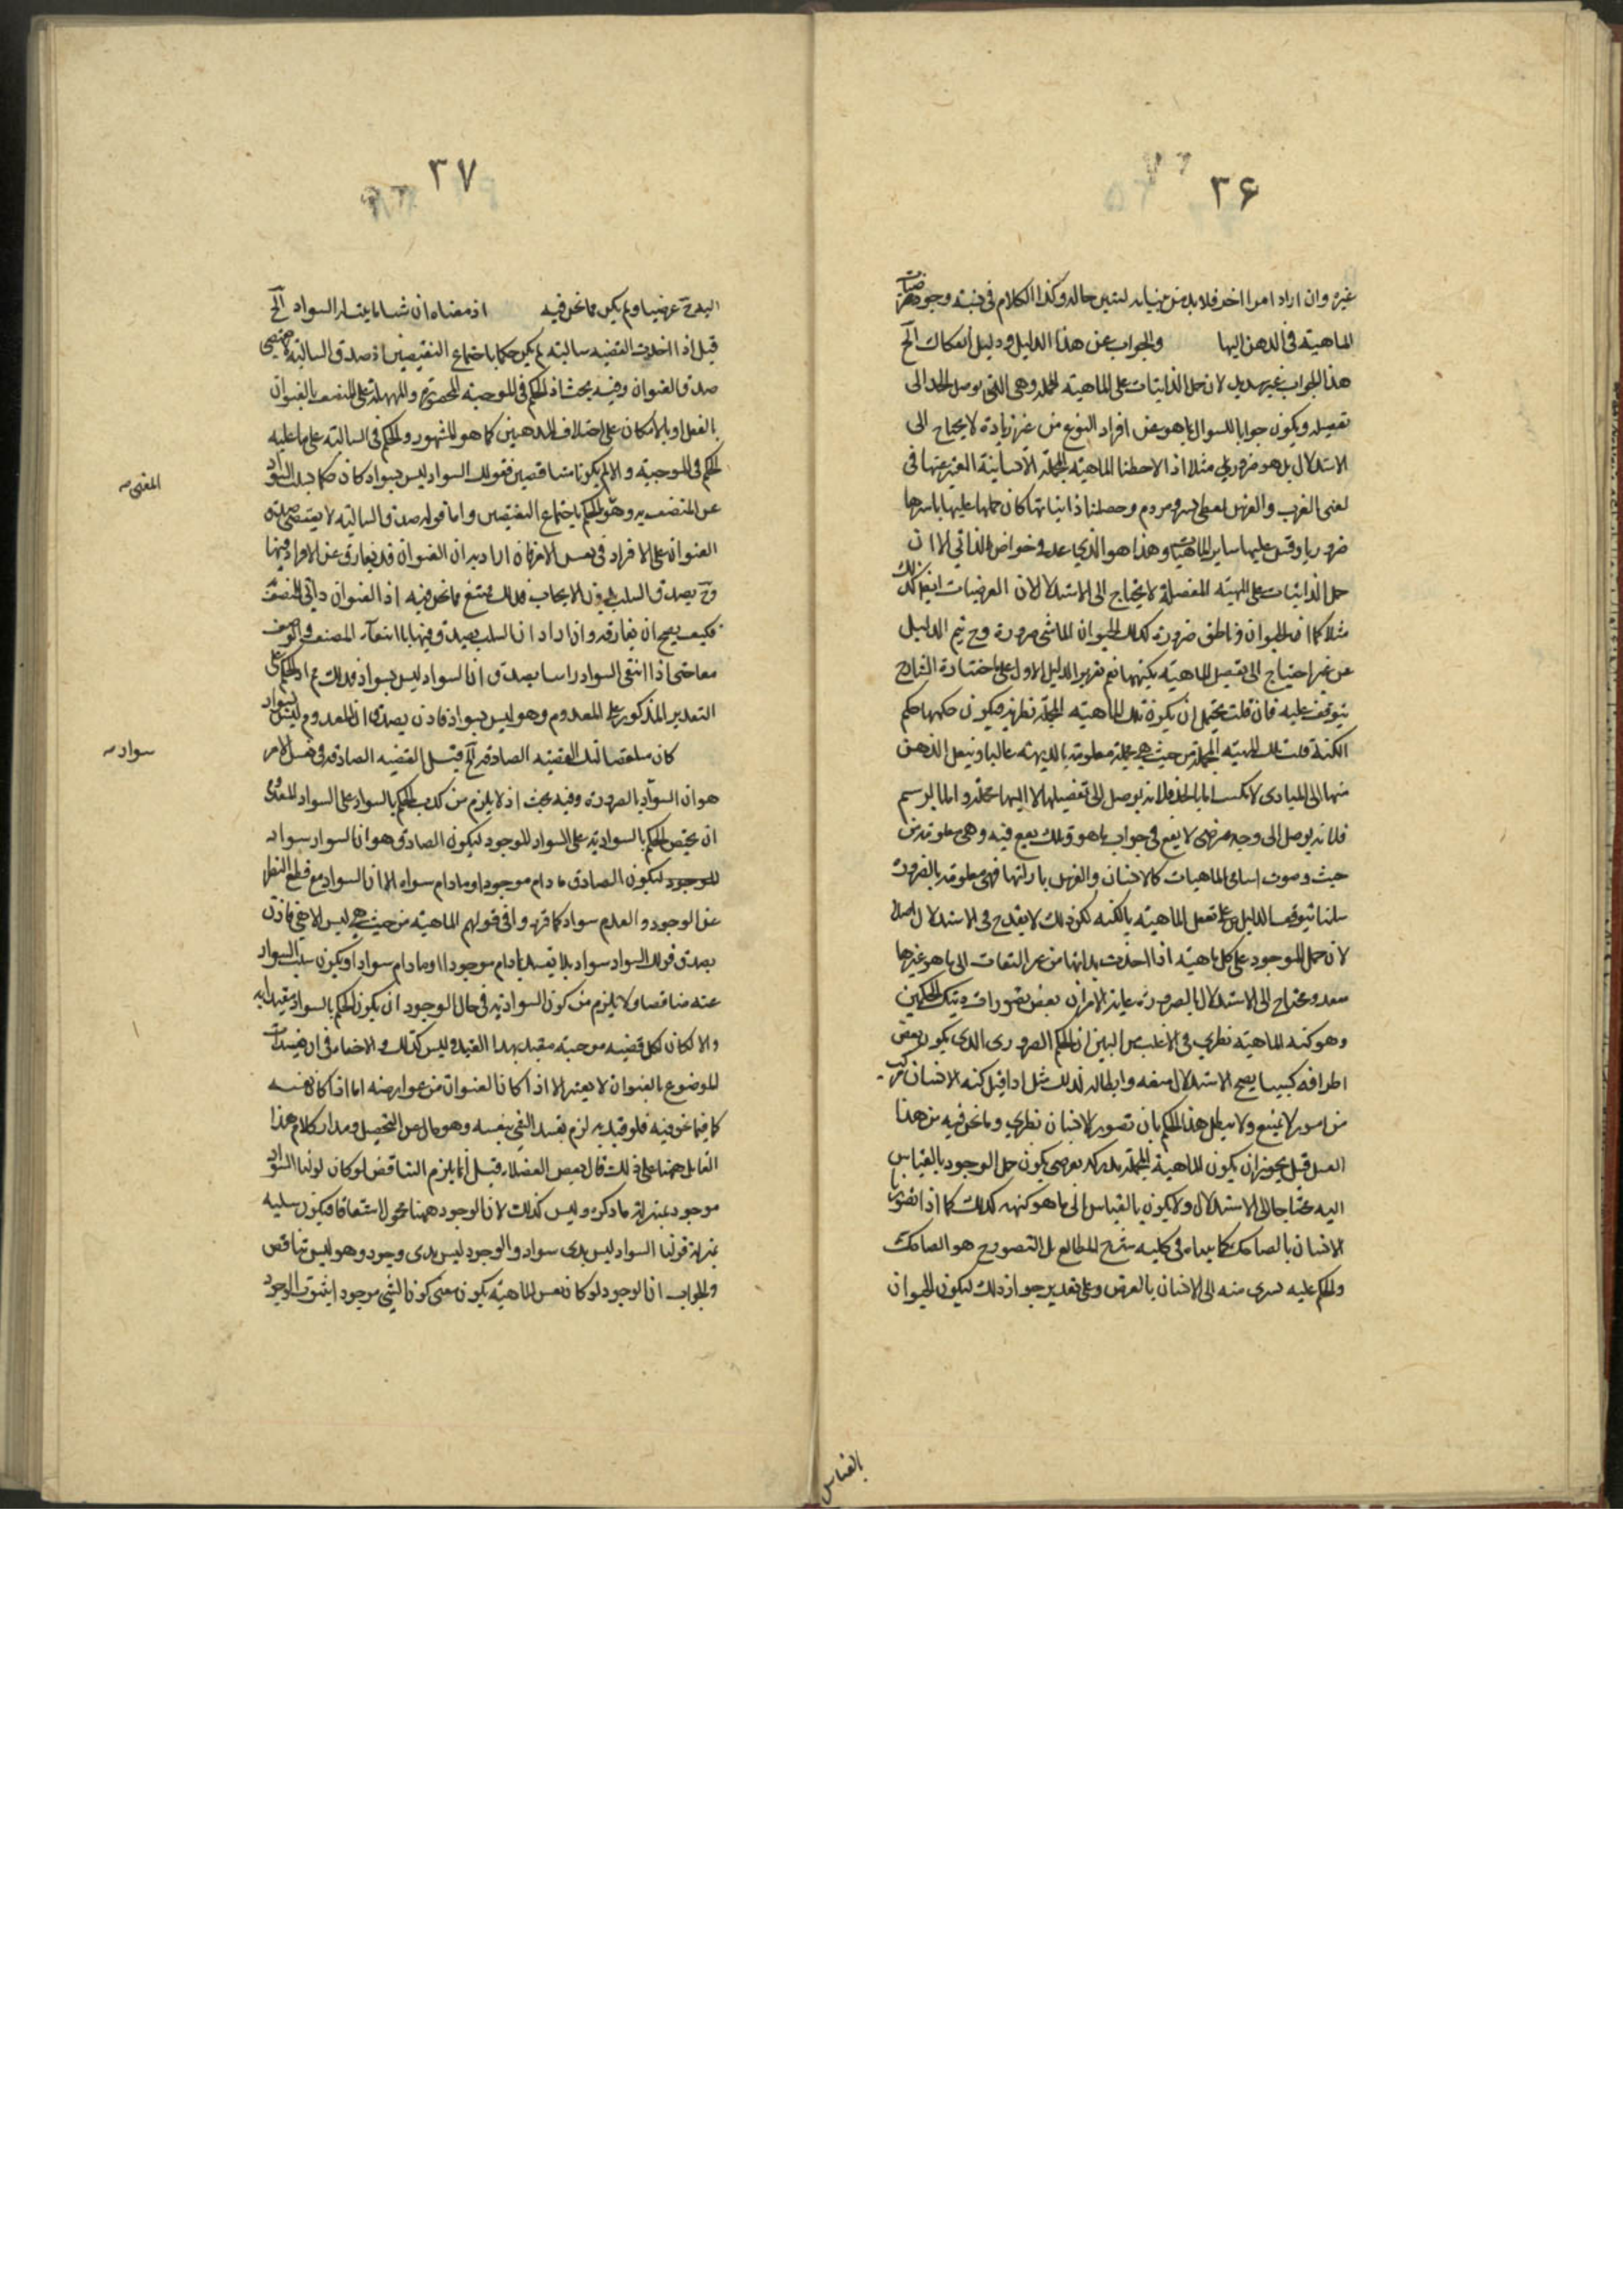 ۳۶
غيره وان اراد امرا اخر فلا بد من بيانه ليتبين حاله وكذا الكلام فى نسبة وجود
الماهية فى الذهن اليها والجواب عن هذا الدليل ودليل انفكاك الخ
هذا الجواب غير سديد لان حمل الذاتيات على الماهية المجملة وهى التى يوصل الحد الى
تفصيله ويكون جوابا للسوال بما هو عن افراد النوع من غير زيادة لا يحتاج الى
الاستدلال بل هو ضرورى مثلا اذا لاحظنا الماهية المجملة الانسانية المعبر عنها فى
لغتى العرب والفرس بلفظى بشر ومردم وحصلنا ذاتياتها كان حملها عليها باسرها
ضروريا وقس عليها ساير الماهيات وهذا هو الذى عد من خواص الذاتى الا ان
حمل الذاتيات على المهية المفصلة لا يحتاج الى الاستدلال لان العرضيات ايضا كذلك
مثلا كما ان الحيوان ناطق ضرورة كذلك الحيوان الماشى ضرورة وح يتم الدليل
من غير احتياج الى تفصيل الماهية بكنهها نعم تقرير الدليل الاول على ما اختاره الشارح
يتوقف عليه فان قلت يحتمل ان يكون تلك الماهية المجملة نظرية فيكون حكمها حكم
الكنه قلت تلك المهية المجملة من حيث هى مجملة معلومة بالبديهة غالبا وينتقل الذهن
منها الى المبادى لا تكسب اما بالحد فلانه يوصل الى تفصيلها لا اليها مجملة واما بالرسم
فلانه يوصل الى وجه عرضى لا يقع فى جواب ما هو وتلك يقع فيه وهى معلومة من
حيث وصوت اسامى الماهيات كالانسان والفرس بازائها فهى معلومة بالضرورة
سلمنا توقف الدليل على تعقل الماهية بالكنه لكن ذلك لا يقدح فى الاستدلال اصلا
لان حمل الموجود على كل ماهية اذا اخذت بذاتها من غير التفات الى ما هو غيرها
معه ومحتاج الى الاستدلال بالضرورة غاية الامر ان بعض تصورات ذينك الحكمين
وهو كنه الماهية نظرى فى الاغلب من البين ان الحكم الضرورى الذى يكون بعض
اطرافه كسبيا يصح الاستدلال وابطاله لذلك مثل اذا قيل كنه الانسان مركب
من امور لا يمتنع ولا يبطل هذا الحكم بان تصور الانسان نظرى وما نحن فيه من هذا
القبيل قيل يجوز ان يكون للماهية المجملة مدركة بعرضى يكون حمل الوجود بالقياس
اليه محتاجا الى الاستدلال ولا يكون بالقياس الى ما هو كنهه كذلك كما اذا تصورنا
الانسان بالضاحك كما بيناه فى كليه شرح المطالع بل المتصور ح هو الضاحك
والحكم عليه يسرى منه الى الانسان بالعرض وعلى تقدير جواز ذلك ليكون الحيوان
بالقياس
۳۷
البعد ح عرضيا ولم يكن مما نحن فيه اذ معناه ان شيئا ما يتسلب السواد الخ
قيل اذا اخذت القضية سالبة لم يكن حكما باجتماع النقيضين اذ صدق السالبة لا يقتضى
صدق العنوان وفيه بحث اذ الحكم فى الموجبة المحصورة والمهملة على المتصف بالعنوان
بالفعل او بالامكان على اختلاف المذهبين كما هو المشهور والحكم فى السالبة على ما عليه
الحكم فى الموجبة والا لم يكونا متناقضين فقولك السواد ليس بسواد كان حكما بسلب السواد
عن المتصف به وهو الحكم باجتماع النقيضين واما قوله صدق السالبة لا يقتضى صدق
المقتضى
العنوان على الافراد فى نفس الامر فان اراد به ان العنوان قد يفارق عن الافراد فيها
وح يصدق السلب دون الايجاب فذلك ممتنع فيما نحن فيه اذ العنوان ذاتى للمتصف
فكيف يصح ان يفارقه وان اراد ان السلب يصدق فيها بانتفاء المتصف والوصف
معا حتى اذا انتفى السواد راسا يصدق ان السواد ليس بسواد فذلك م اذ الحكم على
التقدير المذكور على المعدوم وهو ليس بسواد فاذن يصدق ان المعدوم ليس بسواد
كان مناقضا لتلك القضية الصادقة الخ قيل القضية الصادقة فى نفس الامر
سواد
هو ان السواد بالضرورة وفيه بحث اذ لا يلزم من كذب الحكم بالسواد على السواد المعدوم
ان يختص الحكم بالسوادية على السواد الموجود ليكون الصادق هو ان السواد سواد
الموجود ليكون الصادق ما دام موجودا وما دام سوادا لا ان السواد مع قطع النظر
عن الوجود والعدم سواد كما قرروا فى قولهم الماهية من حيث هى ليس الا هى فاذن
يصدق قولك السواد سواد بلا تقييد بما دام موجودا او ما دام سوادا ويكون سلب السواد
عنه مناقضا ولا يلزم من كون السوادية فى حال الوجود ان يكون الحكم بالسواد مقيدا به
والا لكان كل قضية موجبة مقيدة بهذا القيد وليس كذلك ولا خفاء فى ان تقييدات
الموضوع بالعنوان لا يعتبر الا اذا كان العنوان من عوارضه اما اذا كان نفسه
كما فيما نحن فيه فلو قيد به لزم تقييد الشى بنفسه وهو خال عن التحصيل ومدار كلام هذا
القائل ههنا على ذلك قال بعض الفضلاء قيل انما يلزم التناقض لو كان لونا السواد
موجود بمنزلة ما ذكره وليس كذلك لان الوجود ههنا محمول اشتقاقا فيكون سلبه
بمنزلة قولنا السواد ليس بذى سواد والوجود ليس بذى وجود وهو ليس بتناقض
والجواب ان الوجود لو كان نفس الماهية يكون معنى كون الشى موجودا ثبوت الوجود